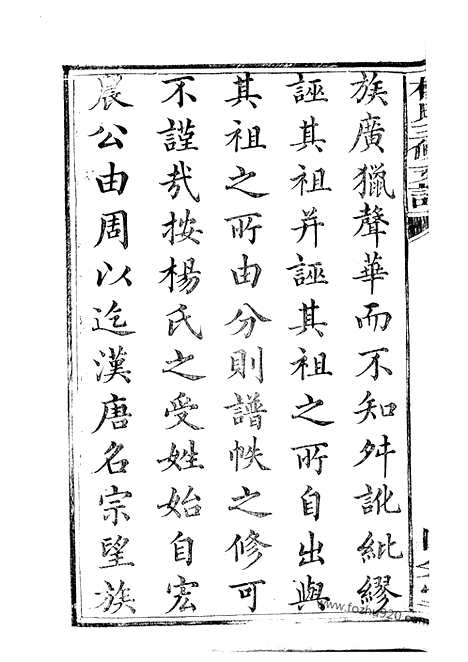 楊氏三修支譜
族廣獵聲華而不知舛訛紕繆
誣其祖并誣其祖之所自出與
其祖之所由分則譜帙之修可
不謹哉按楊氏之受姓始自宏
農公由周以迄漢唐名宗望族
www.fozhu920.com